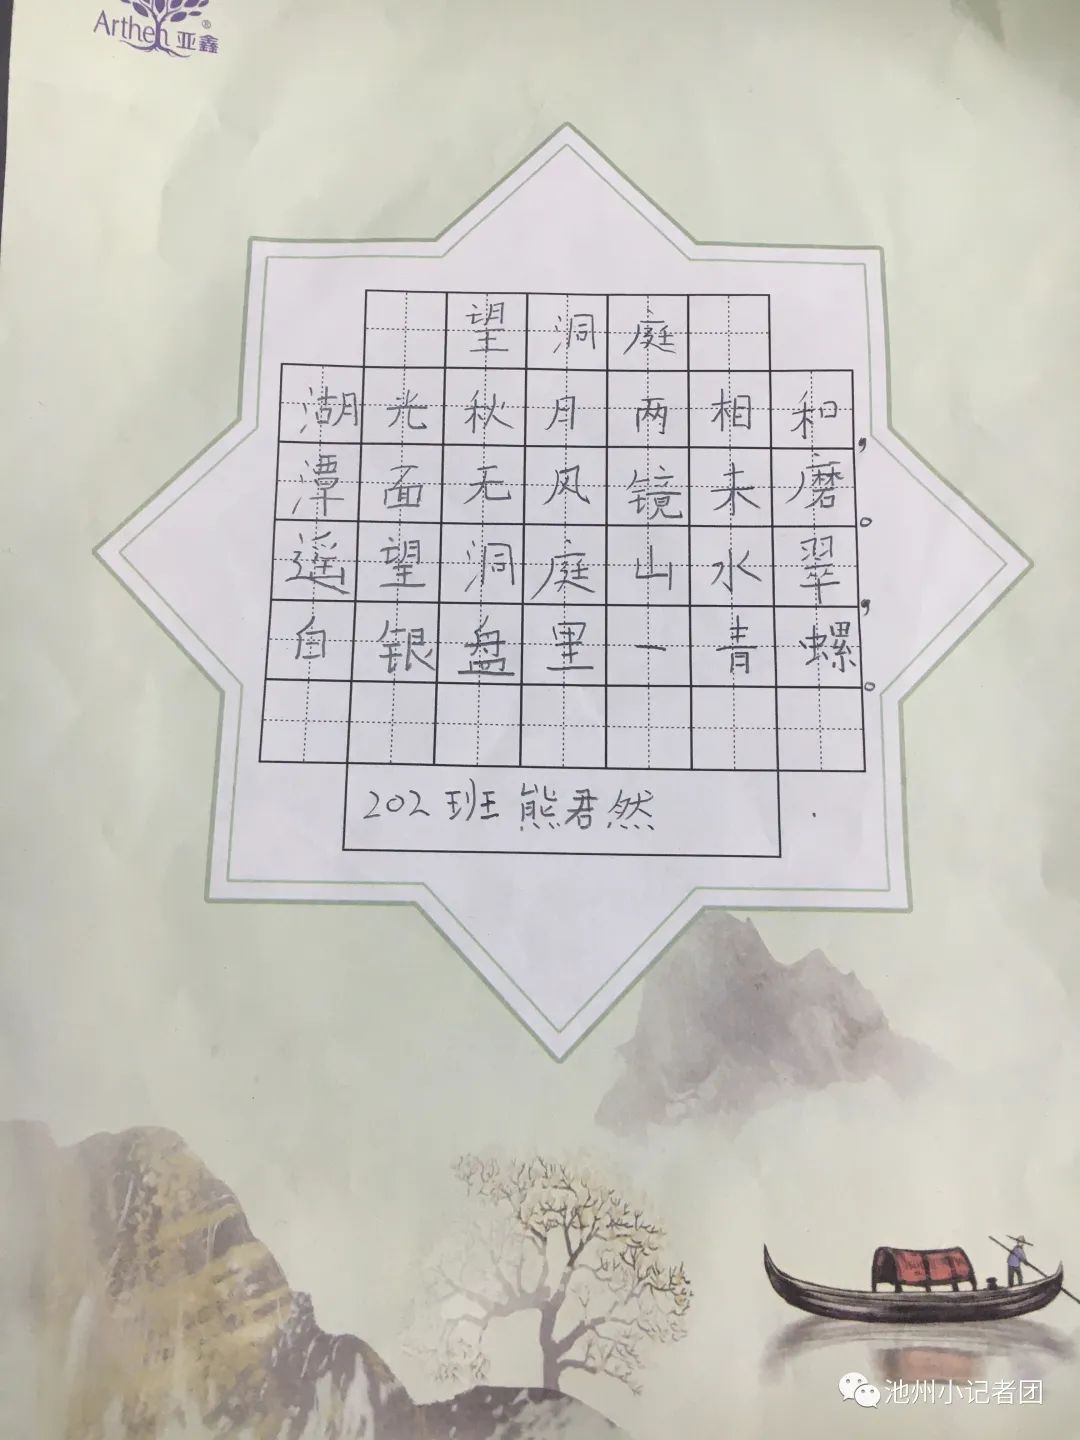 Arthen® 亚鑫
望洞庭
湖光秋月两相和，
潭面无风镜未磨。
遥望洞庭山水翠，
白银盘里一青螺。
202班熊君然
池州小记者团